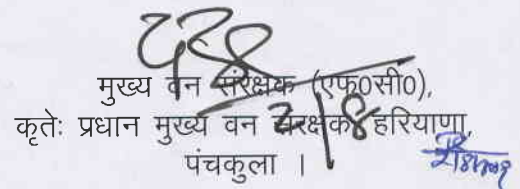 मुख्य वन संरक्षक (एफ0सी0),
कृतेः प्रधान मुख्य वन संरक्षक हरियाणा,
पंचकुला ।